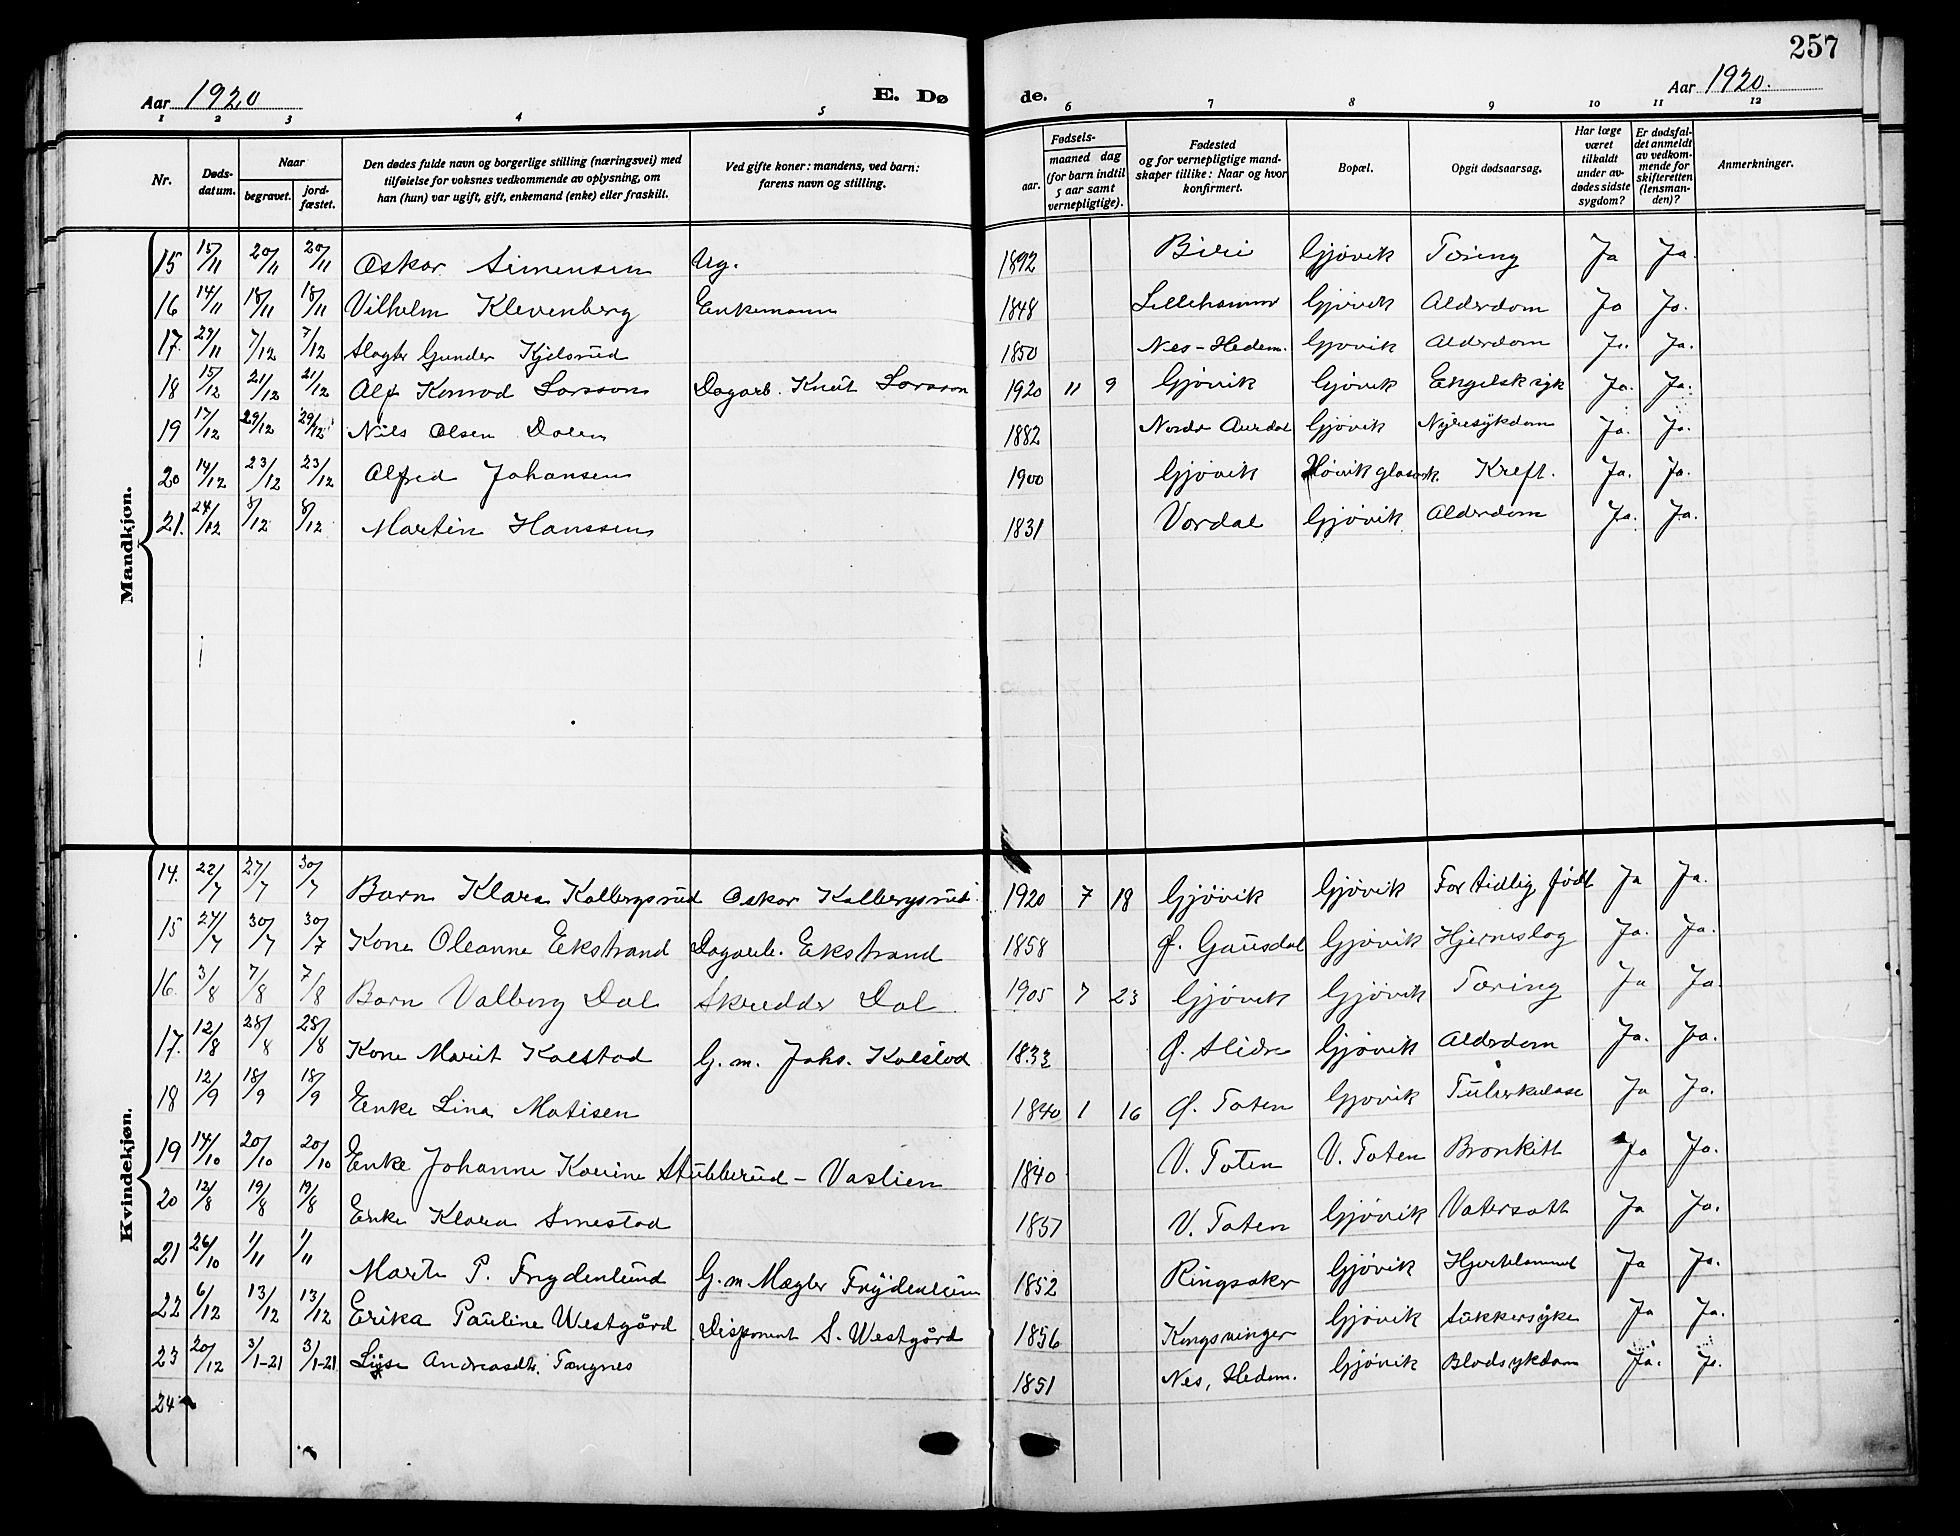 257
Aar 1920 E. Dø de. Aar 1920.
1 2 3 4 5 6 7 8 9 10 11 12
Nr. Døds-datum. Naar begravet. jord-fæstet. Den dødes fulde navn og borgerlige stilling (næringsvei) med tilføielse for voksnes vedkommende av oplysning, om han (hun) var ugift, gift, enkemand (enke) eller fraskilt. Ved gifte koner: mandens, ved barn: farens navn og stilling. Fødsels- aar. maaned dag (for barn indtil 5 aar samt vernepligtige). Fødested og for vernepligtige mand-skaper tillike: Naar og hvor konfirmert. Bopæl. Opgit dødsaarsag. Har læge været tilkaldt under av-dødes sidste sygdom? Er dødsfal-det anmeldt av vedkom-mende for skifteretten (lensman-den)? Anmerkninger.
Mandkjøn.
15 15/11 20/11 20/11 Oskar Simensen Ug. 1892 Biri Gjøvik Tæring Ja Ja.
16 14/11 18/11 18/11 Vilhelm Klevenberg Enkemann 1848 Lillehammer Gjøvik Alderdom Ja Ja.
17. 29/11 7/12 7/12 Slagter Gunder Kjdsrud 1850 Nes-Hedem. Gjøvik Alderdom Ja. Ja.
18 15/12 21/12 21/12 Alf Konrad Larsson Dagarb. Knut Larsson 1920 11 9 Gjøvik Gjøvik Engelsk syk Ja. Ja.
19 17/12 29/12 29/12 Nils Olsen Dalen 1882 Nordr Aurdal Gjøvik Nyresykdom Ja. Ja.
20 14/12 23/12 23/12 Alfred Johansen 1900 Gjøvik Høvik glasverk. Kreft. Ja. Ja.
21. 24/12 8/12 8/12 Martin Hanssen 1831 Vardal Gjøvik Alderdom Ja. Ja.
Kvindekjøn.
14. 22/7 27/7 30/7 Barn Klara Kalbergsrud Oskar Kalbergsrud 1920 7 18 Gjøvik Gjøvik For tidlig født Ja Ja.
15 27/7 30/7 30/7 Kone Oleanne Ekstrand Dagarb. Ekstrand 1858 Ø. Gausdal Gjøvik Hjerneslag Ja. Ja.
16. 3/8 7/8 7/8 Barn Valborg Dal Skredder Dal 1905 7 23 Gjøvik Gjøvik Tæring Ja Ja
17. 12/8 28/8 28/8 Kone Marit Kolstad G. m. Johs. Kolstad 1833 Ø. Slidre Gjøvik Alderdom Ja. Ja.
18 12/9 18/9 18/9 Enke Lina Matisen 1840 1 16 Ø. Toten Gjøvik Tuberkulose Ja Ja.
19 14/10 20/10 20/10 Enke Johanne Karine Stubberud - Vaslien 1840 V. Toten V. Toten Bronkitt Ja Ja.
20 12/8 19/8 19/8 Enke Klara Smestad 1857 V. Toten Gjøvik Vatersott Ja Ja.
21 26/10 1/11 1/11 Marte P. Frydenlund G. m Mægler Frydenlun 1852 Ringsaker Gjøvik Hjertelammel Ja Ja.
22 6/12 13/12 13/12 Erika Pauline Westgård Disponent S. Westgård 1856 Kongsvinger Gjøvik Sukkersyke Ja Ja.
23 20/12 3/1-21 3/1-21 Lise Andreasdtr. Tangnes 1851 Nes, Hedem. Gjøvik Blodsykdom Ja. Ja.
24